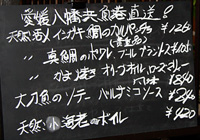 愛媛八幡浜魚巻直送!
天然活〆 イシガキ鯛のカルパッチョ ¥1260
〃 真鯛のポワレ、ブールブランソース
〃 かま焼き オリーブオイル、ローズマリー風味 1840
太刀魚のソテー バルサミコソース ¥840
天然 小海老のボイル ¥420